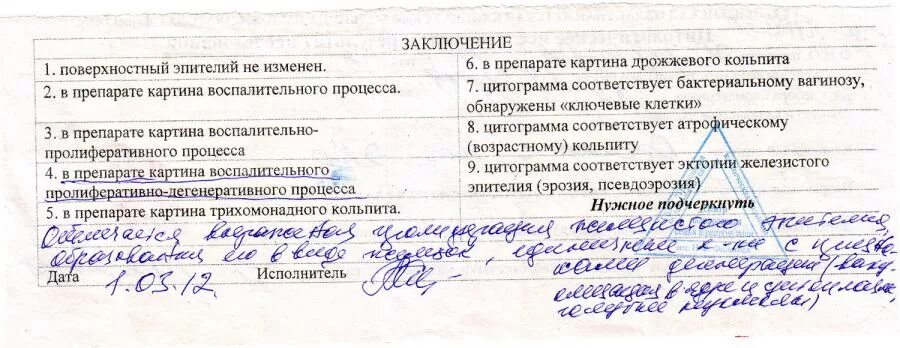 ЗАКЛЮЧЕНИЕ
1. поверхностный эпителий не изменен.
2. в препарате картина воспалительного процесса.
3. в препарате картина воспалительно-
пролиферативного процесса
4. в препарате картина воспалительного
пролиферативно-дегенеративного процесса
5. в препарате картина трихомонадного кольпита.
6. в препарате картина дрожжевого кольпита
7. цитограмма соответствует бактериальному вагинозу,
обнаружены «ключевые клетки»
8. цитограмма соответствует атрофическому
(возрастному) кольпиту
9. цитограмма соответствует эктопии железистого
эпителия (эрозия, псевдоэрозия)
Нужное подчеркнуть
Отмечается выраженная пролиферация железистого эпителия,
образования его в виде железок, единичные к-ки с призна-
ками дегенерации (ваку-
олизация в ядре и цитоплазме,
Дата 1.03.12. Исполнитель